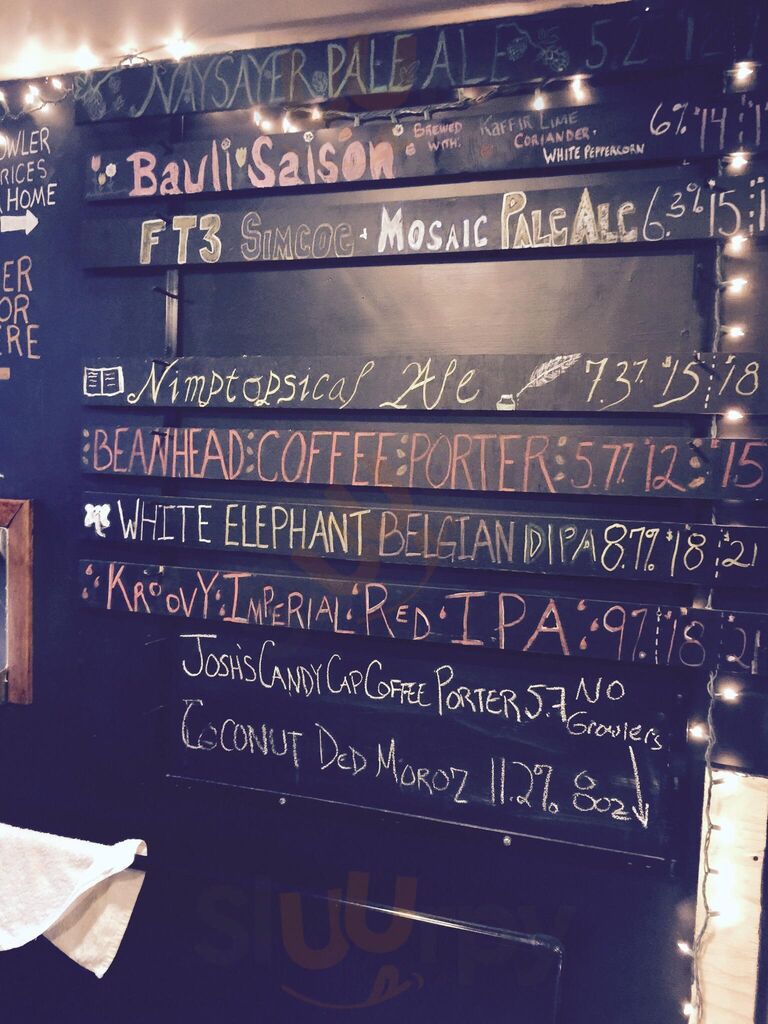 NAYSAYER PALE ALE 5.2
OWLER
RICES
HOME
Bauli Saison BREWED WITH: KAFFIR LIME CORIANDER. WHITE PEPPERCORN 6% $14
FT3 SIMCOE · MOSAIC PALE ALE 6.3% $15
ER
OR
ERE
Nimptopsical Ale 7.3% $15 $18
BEANHEAD COFFEE PORTER 5.7% 12 $15
WHITE ELEPHANT BELGIAN DIPA 8.7% $18 $21
KROOVY IMPERIAL RED IPA 9% $18 21
JOSH'S CANDY CAP COFFEE PORTER 5.7 NO Growlers
COCONUT DED MOROZ 11.2% 8oz
sluurpy